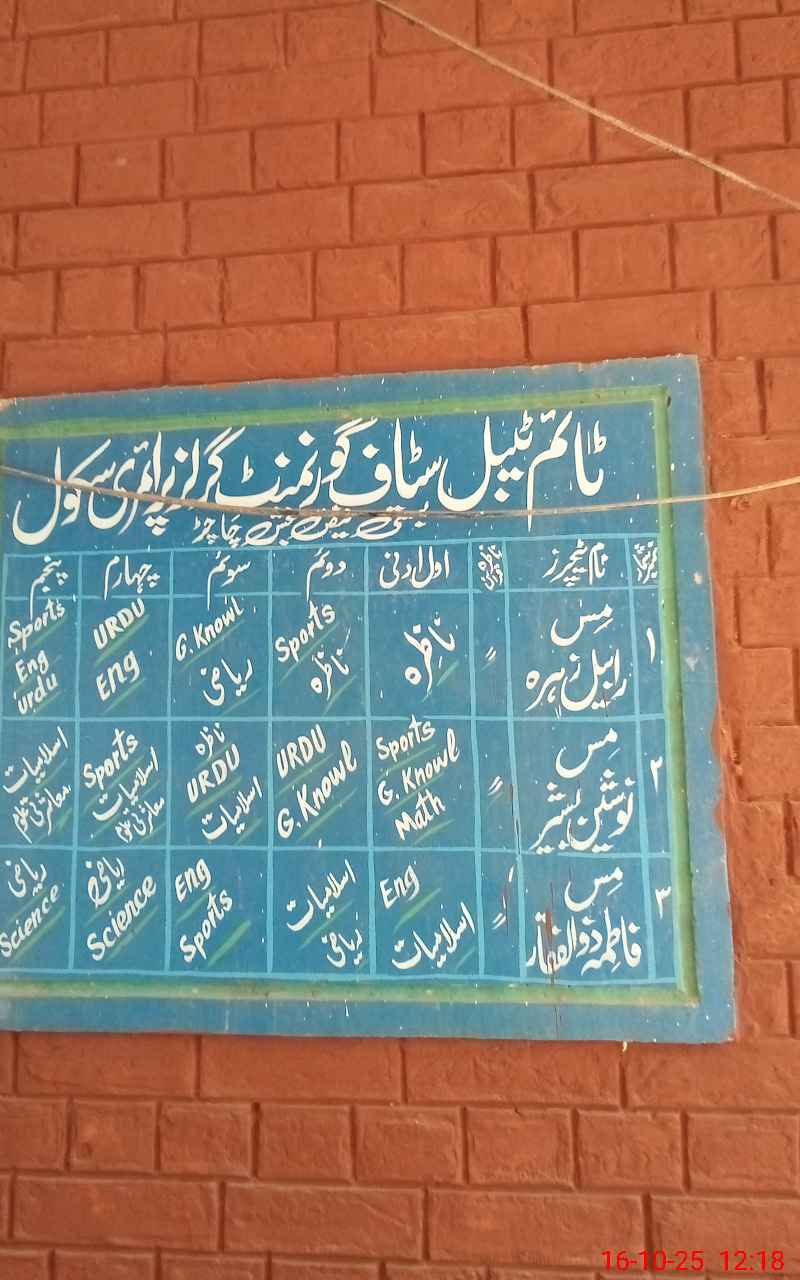 ٹائم ٹیبل سٹاف گورنمنٹ گرلز پرائمری سکول
بستی چاچڑ
نمبر شمار نام ٹیچرز ناظرہ قرآن اول ادنی دوئم سوئم چہارم پنجم
۱ مِس رابیل زہرہ 〃 ناظرہ Sports ناظرہ G. Knowl ریاضی URDU Eng Sports Eng urdu
۲ مِس نوشین بشیر 〃 Sports G. Knowl Math URDU G. Knowl ناظرہ URDU اسلامیات Sports اسلامیات معاشرتی علوم اسلامیات معاشرتی علوم
۳ مِس فاطمہ ذوالفقار 〃 Eng اسلامیات اسلامیات ریاضی Eng Sports ریاضی Science ریاضی Science
16-10-25 12:18